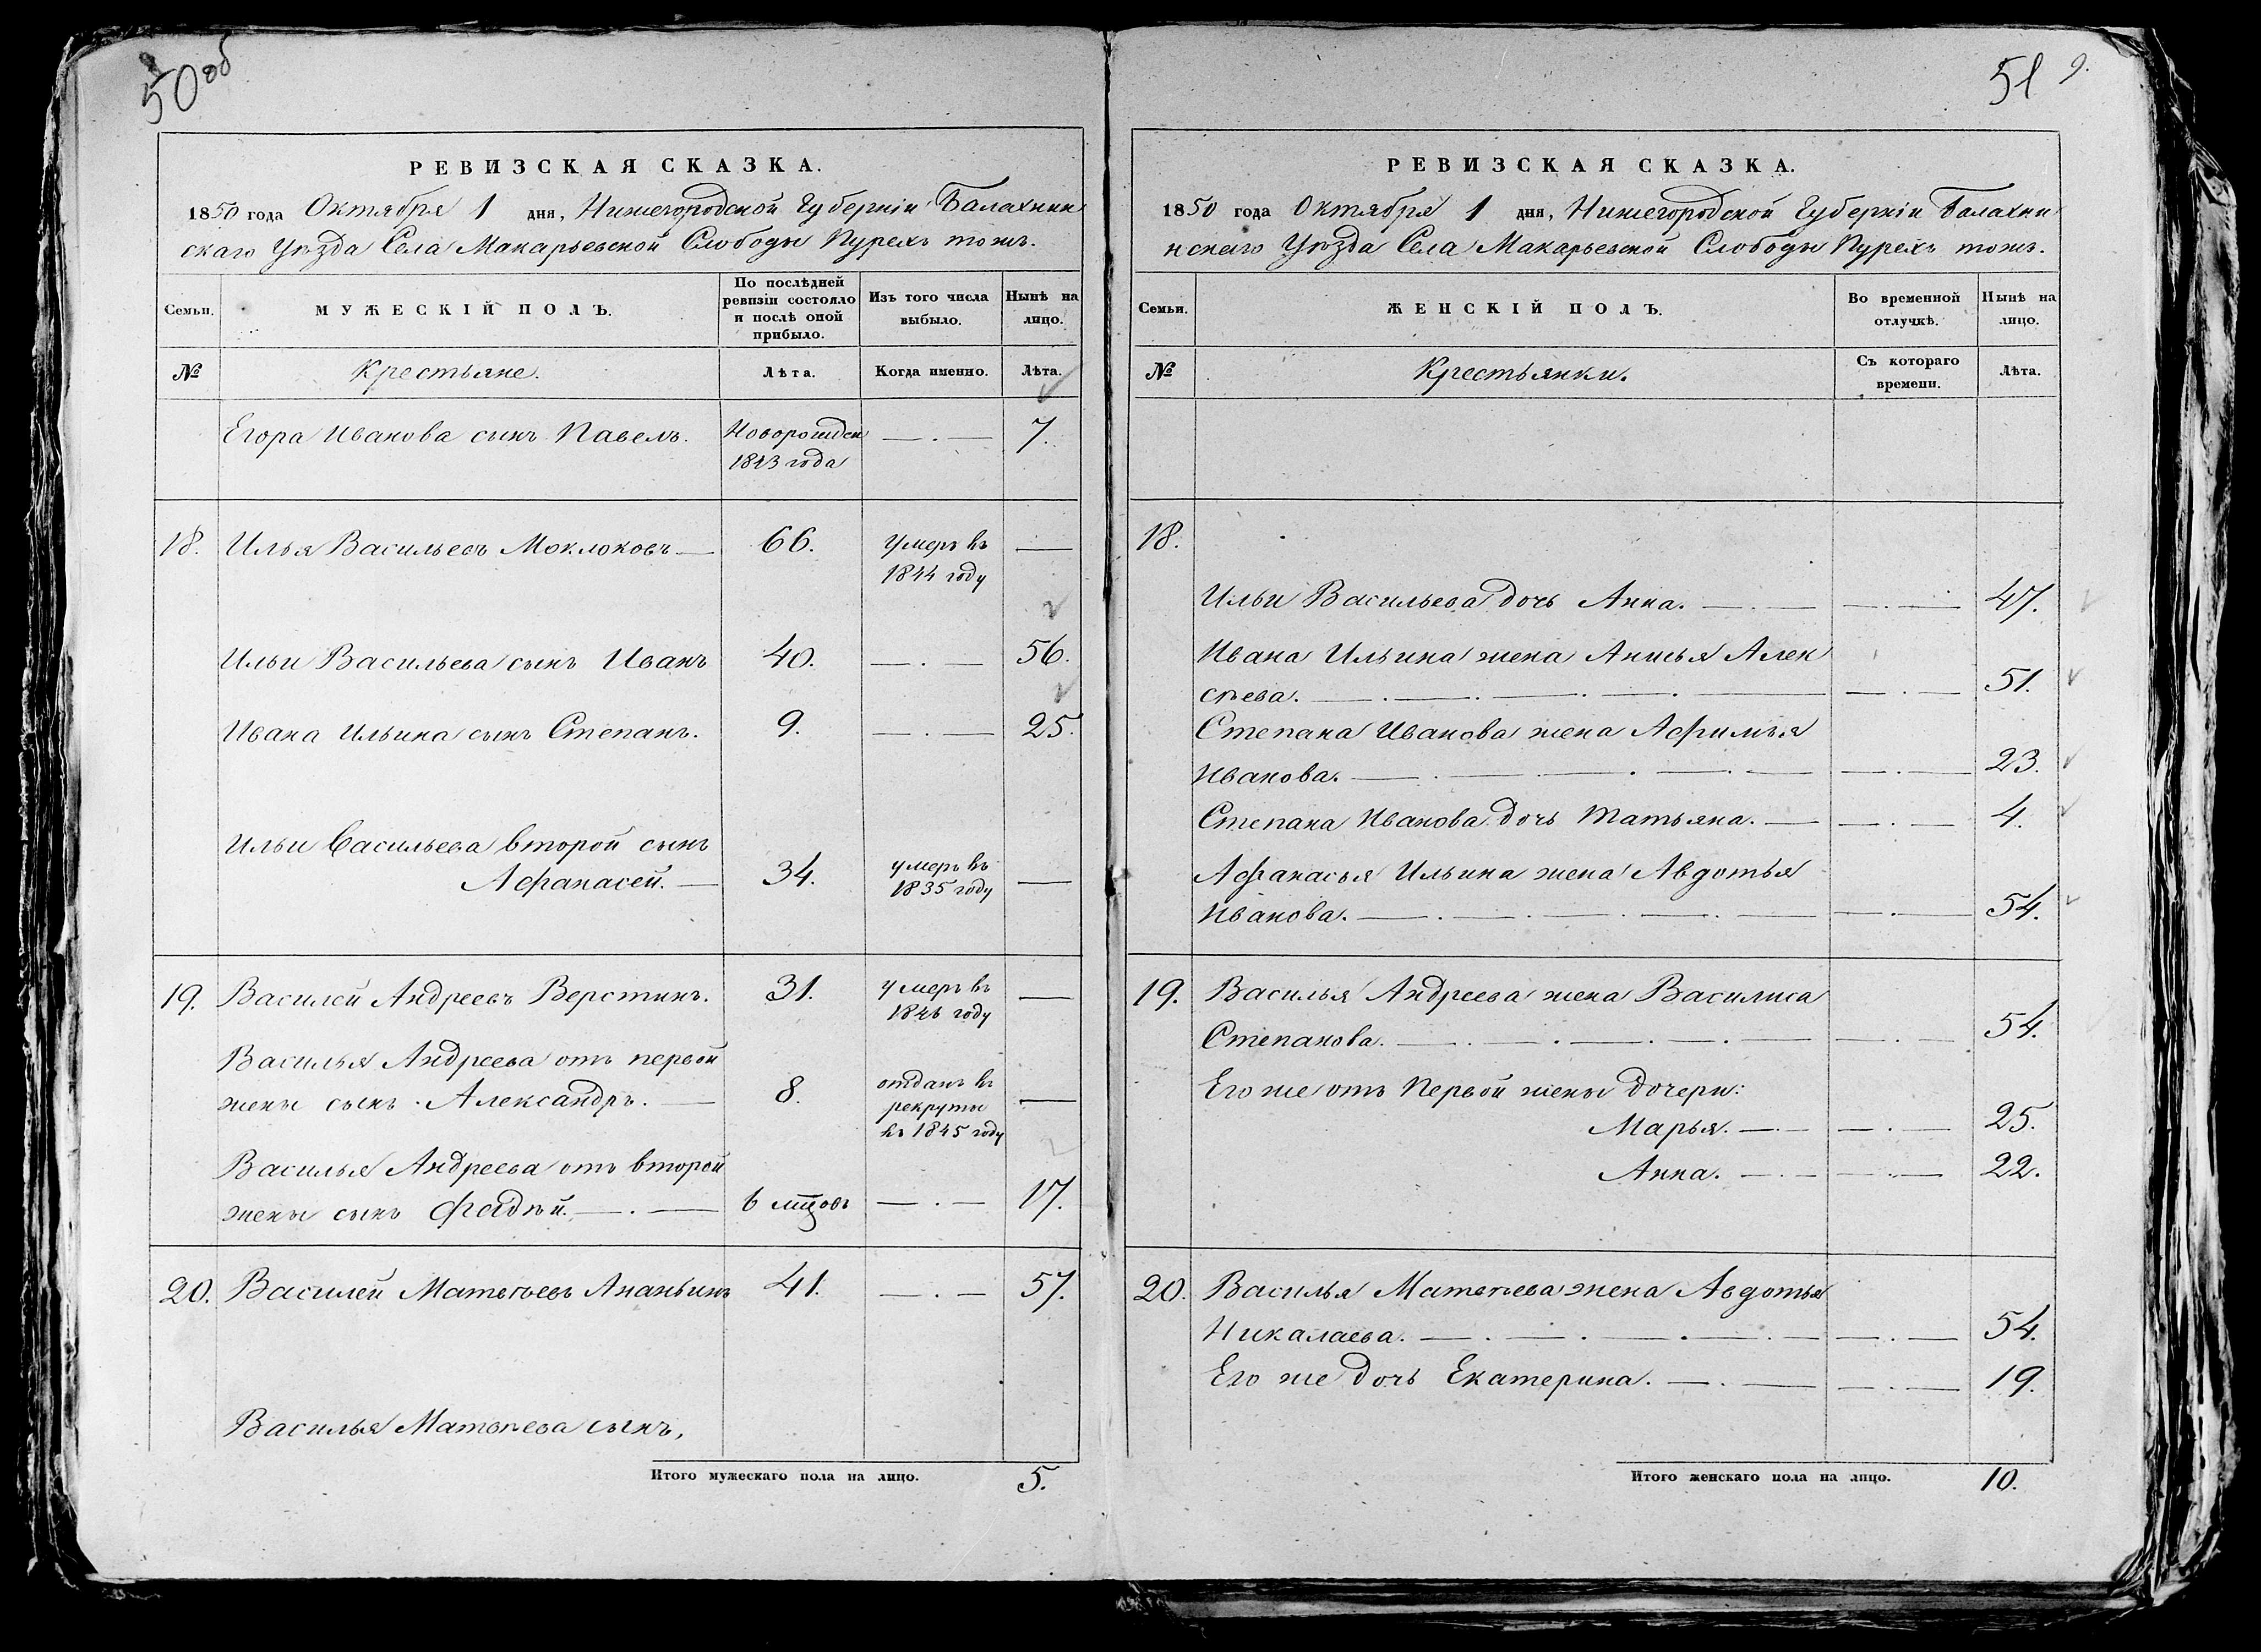 50 об
РЕВИЗСКАЯ СКАЗКА.
1850 года Октября 1 дня, Нижегородской Губерніи Балахнин
скаго Уѣзда Села Макарьевской Слободы Пурехъ тожъ.
Семьи.
МУЖЕСКІЙ ПОЛЪ.
По послѣдней
ревизіи состояло
и послѣ оной
прибыло.
Изъ того числа
выбыло.
Нынѣ на
лицо.
№
Крестьяне.
Лѣта.
Когда именно.
Лѣта.
Егора Иванова сынъ Павелъ. Новорожден — . — 7.
1843 года
18. Илья Васильевъ Моклоковъ — 66. умеръ въ —
1844 году
Ильи Васильева сынъ Иванъ 40. — . — 56.
Ивана Ильина сынъ Степанъ. 9. — . — 25.
Ильи Васильева второй сынъ
Афанасей. — 34. умеръ въ —
1835 году
19. Василей Андреевъ Верстинъ. 31. умеръ въ —
1846 году
Василья Андреева отъ первой
жены сынъ Александръ. — 8. отданъ въ —
рекруты
въ 1845 году
Василья Андреева отъ второй
жены сынъ Фадѣй. — . — 6 мцовъ — . — 17.
20. Василей Матвѣевъ Ананьинъ 41. — . — 57.
Василья Матвѣева сынъ,
Итого мужескаго пола на лицо. 5.
51 9.
РЕВИЗСКАЯ СКАЗКА.
1850 года Октября 1 дня, Нижегородской Губерніи Балахни
нскаго Уѣзда Села Макарьевской Слободы Пурехъ тожъ.
Семьи.
ЖЕНСКІЙ ПОЛЪ.
Во временной
отлучкѣ.
Нынѣ на
лицо.
№
Крестьянки.
Съ котораго
времени.
Лѣта.
18.
Ильи Васильева дочь Анна. — . — — . — 47.
Ивана Ильина жена Анисья Алек
сѣева. — . — . — . — . — — . — 51.
Степана Иванова жена Афимья
Иванова. — . — . — . — — . — 23.
Степана Иванова дочь Татьяна. — — . — 4.
Афанасья Ильина жена Авдотья
Иванова. — . — . — . — — . — 54.
19. Василья Андреева жена Василиса
Степанова. — . — . — . — . — — . — 54.
Его же отъ первой жены дочери:
Марья. — . — — . — 25.
Анна. — . — — . — 22.
20. Василья Матвѣева жена Авдотья
Никалаева. — . — . — . — . — — . — 54.
Его же дочь Екатерина. — . — — . — 19.
Итого женскаго пола на лицо. 10.